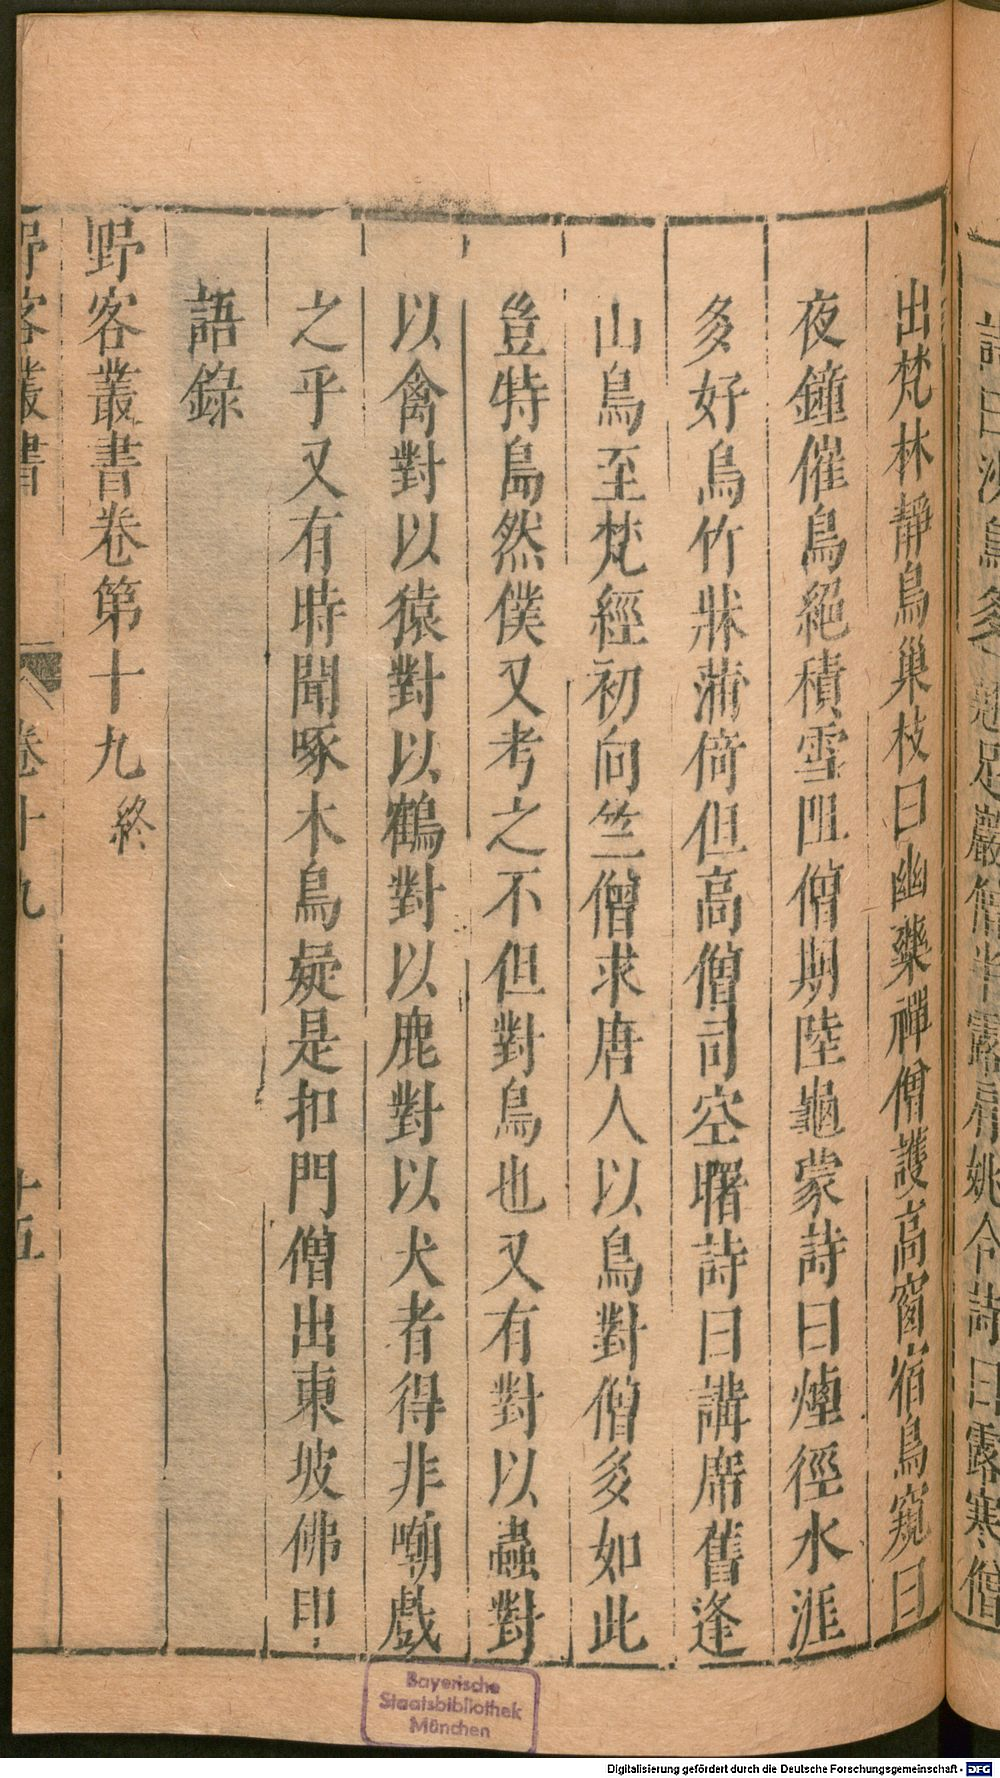 出梵林靜鳥巢枝曰幽藥禪僧護高窗宿鳥窺曰
夜鐘催鳥絕積雪阻僧期陸龜蒙詩曰煙徑水涯
多好鳥竹牀蒲倚但高僧司空曙詩曰講席舊逢
山鳥至梵經初向竺僧求唐人以鳥對僧多如此
豈特島然僕又考之不但對鳥也又有對以蟲對
以禽對以猿對以鶴對以鹿對以犬者得非嘲戲
之乎又有時聞啄木鳥疑是扣門僧出東坡佛印
語錄
野客叢書卷第十九終
野客叢書 卷十九 十五
Bayerische
Staatsbibliothek
München
Digitalisierung gefördert durch die Deutsche Forschungsgemeinschaft - DFG